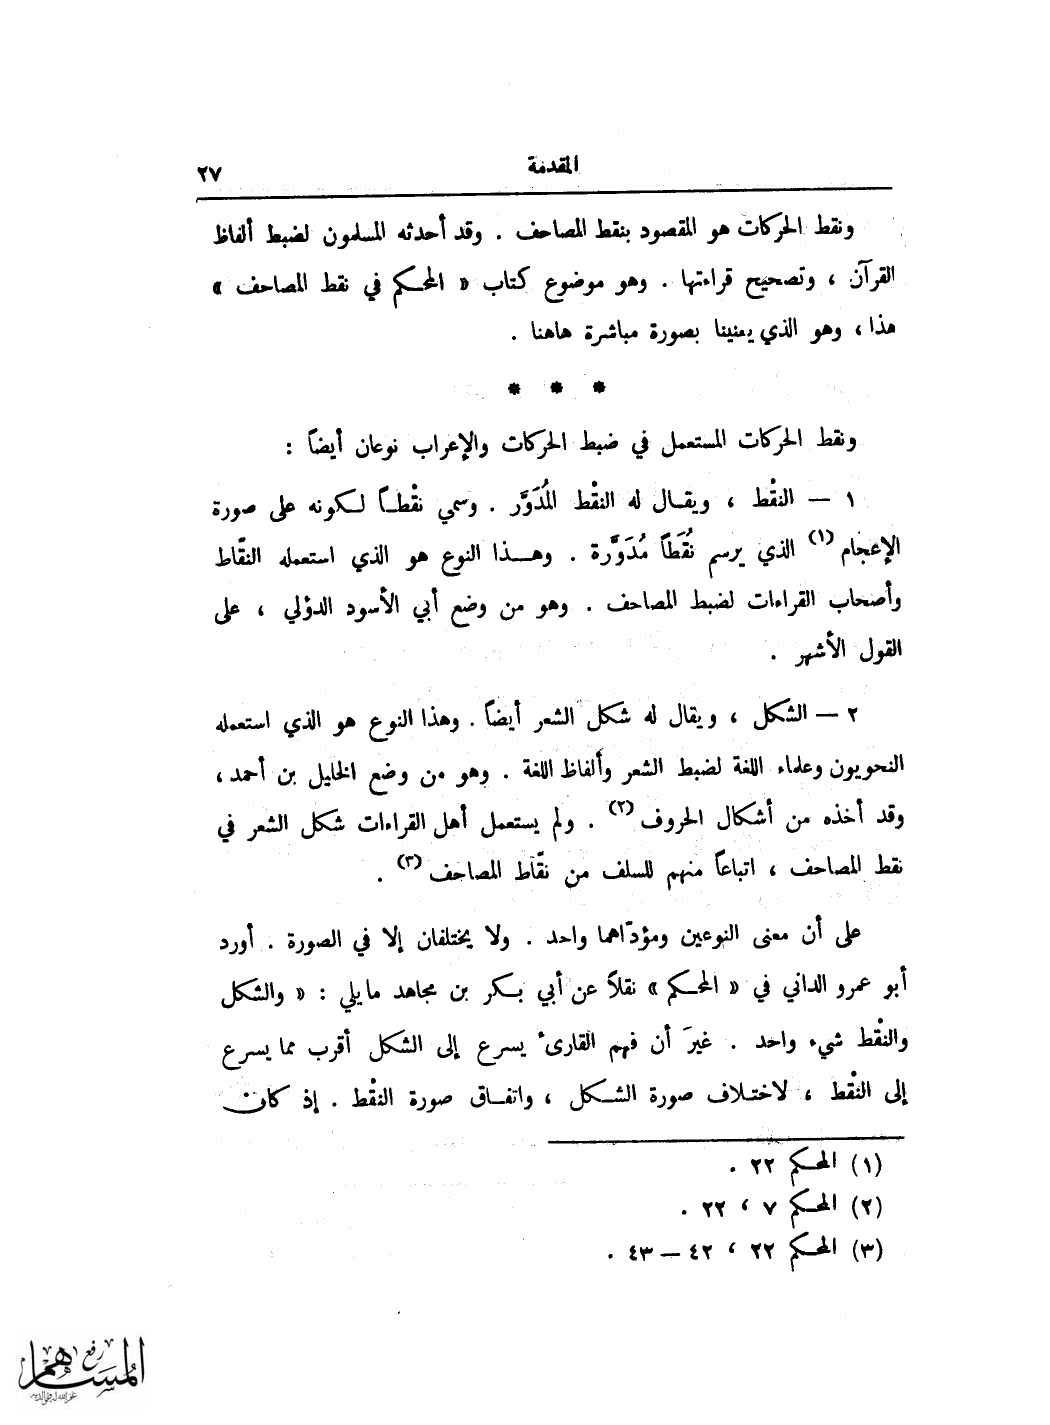 المقدمة
٢٧
ونقط الحركات هو المقصود بنقط المصاحف . وقد أحدثه المسلمون لضبط ألفاظ
القرآن ، وتصحيح قراءتها . وهو موضوع كتاب « المحكم في نقط المصاحف »
هذا ، وهو الذي يعنينا بصورة مباشرة هاهنا .
* * *
ونقط الحركات المستعمل في ضبط الحركات والإعراب نوعان أيضاً :
١ — النقْط ، ويقال له النقْط المُدَوَّر . وسمي نقْطاً لكونه على صورة
الإعجام (١) الذي يرسم نُقَطاً مُدَوَّرة . وهذا النوع هو الذي استعمله النقّاط
وأصحاب القراءات لضبط المصاحف . وهو من وضع أبي الأسود الدؤلي ، على
القول الأشهر .
٢ — الشكل ، ويقال له شكل الشعر أيضاً . وهذا النوع هو الذي استعمله
النحويون وعلماء اللغة لضبط الشعر وألفاظ اللغة . وهو من وضع الخليل بن أحمد ،
وقد أخذه من أشكال الحروف (٢) . ولم يستعمل أهل القراءات شكل الشعر في
نقط المصاحف ، اتباعاً منهم للسلف من نقّاط المصاحف (٣) .
على أن معنى النوعين ومؤدّاهما واحد . ولا يختلفان إلا في الصورة . أورد
أبو عمرو الداني في « المحكم » نقلاً عن أبي بكر بن مجاهد ما يلي : « والشكل
والنقْط شيء واحد . غيرَ أن فهم القارىء يسرع إلى الشكل أقرب مما يسرع
إلى النقْط ، لاختلاف صورة الشكل ، واتفاق صورة النقْط . إذ كان
(١) المحكم ٢٢ .
(٢) المحكم ٧ ، ٢٢ .
(٣) المحكم ٢٢ ، ٤٢ — ٤٣ .
رفع
المساهم
غفر الله له ولوالديه